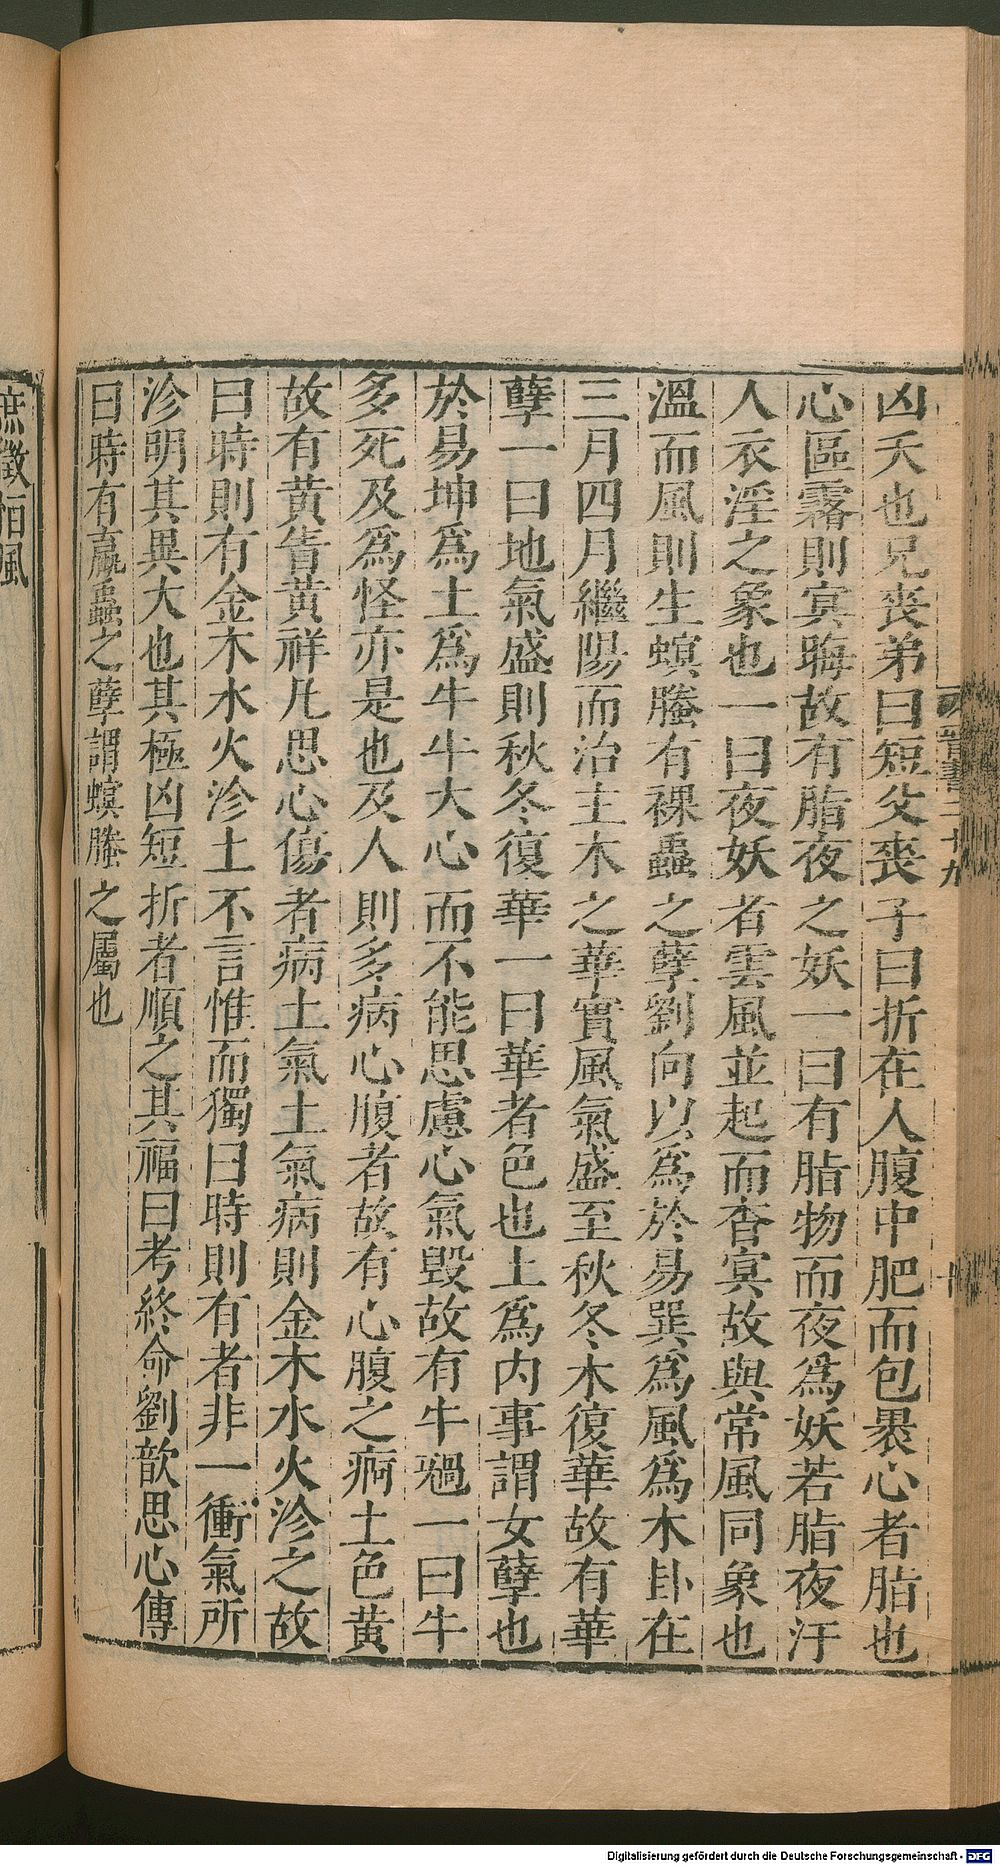 凶夭也兄喪弟曰短父喪子曰折在人腹中肥而包裹心者脂也
心區霧則冥晦故有脂夜之妖一曰有脂物而夜爲妖若脂夜汙
人衣淫之象也一曰夜妖者雲風並起而杳冥故與常風同象也
溫而風則生螟螣有裸蟲之孽劉向以爲於易巽爲風爲木卦在
三月四月繼陽而治主木之華實風氣盛至秋冬木復華故有華
孽一曰地氣盛則秋冬復華一曰華者色也土爲内事謂女孽也
於易坤爲土爲牛牛大心而不能思慮心氣毀故有牛禍一曰牛
多死及爲怪亦是也及人則多病心腹者故有心腹之痾土色黄
故有黄眚黄祥凡思心傷者病土氣土氣病則金木水火沴之故
曰時則有金木水火沴土不言惟而獨曰時則有者非一衝氣所
沴明其異大也其極凶短折者順之其福曰考終命劉歆思心傳
曰時有蠃蟲之孽謂螟螣之屬也
庶徵恒風
晉書二十九
十
Digitalisierung gefördert durch die Deutsche Forschungsgemeinschaft - DFG